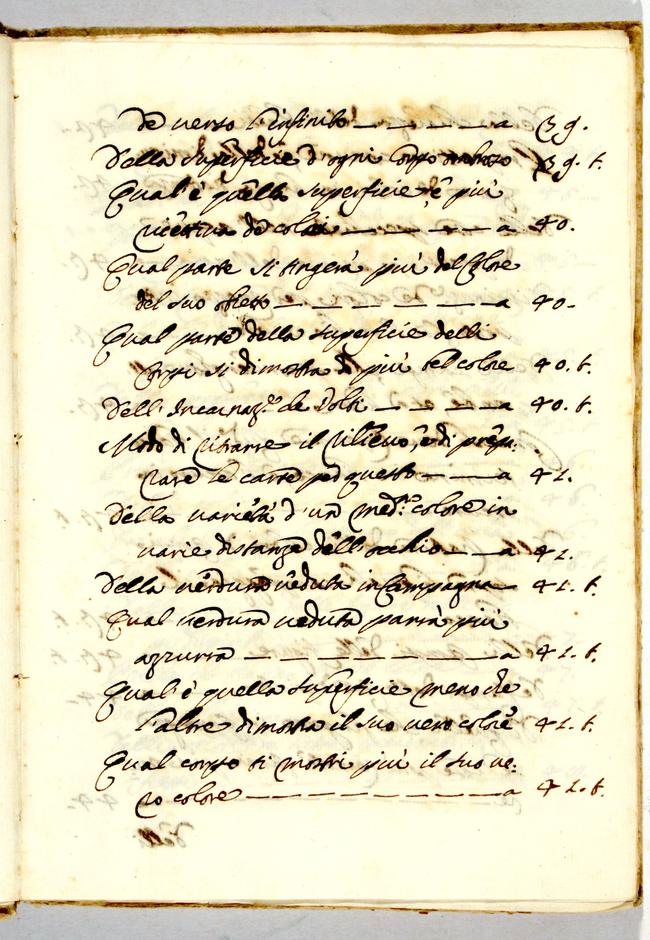 de verso l'infinito — — — — — a 39.
Della superficie d'ogni corpo ombroso 39. t.
Qual'è quella superficie, ch'è più
ricettiva de colori — — — — — a 40.
Qual parte si tingerà più del Colore
del suo obietto — — — — — — a 40.
Qual parte della superficie delli
Corpi si dimostra di più bel colore 40. t.
Dell'Incarnaz.e de Volti — — — — a 40. t.
Modo di ritrarre il rilievo, e di prepa:
rare le carte per questo — — — a 41.
Della varietà d'un med.mo colore in
varie distanze dell'occhio — — a 41.
Della verdura veduta in Campagna — 41. t.
Qual verdura veduta parrà più
azzurra — — — — — — — a 41. t.
Qual'è quella superficie meno che
l'altre dimostra il suo vero colore 41. t.
Qual corpo ti mostri più il suo ve:
ro colore — — — — — — — a 41. t.